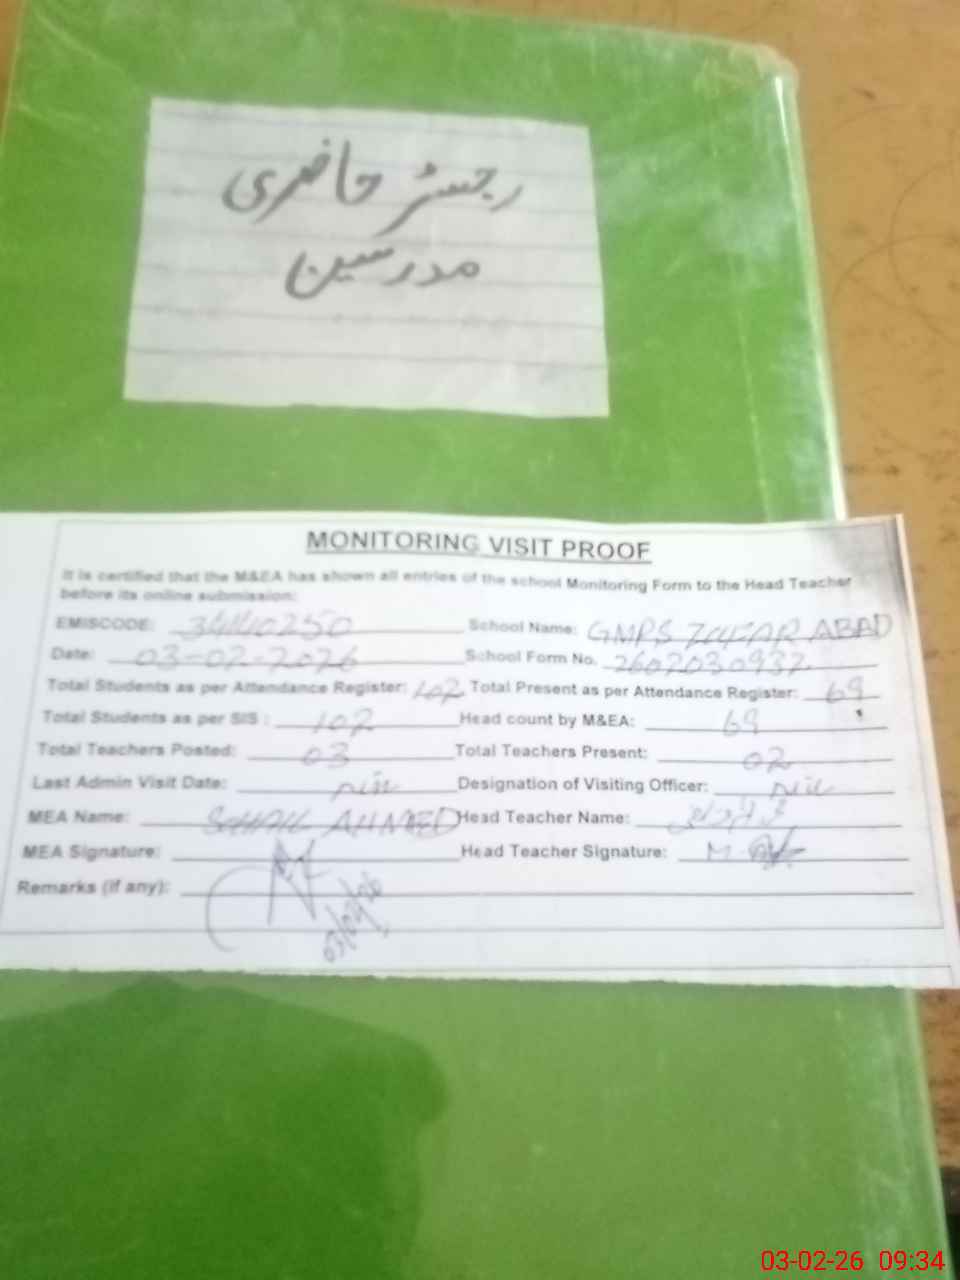 رجسٹر حاضری
مدرسین
MONITORING VISIT PROOF
It is certified that the M&EA has shown all entries of the school Monitoring Form to the Head Teacher
before its online submission:
EMISCODE: 34110250 School Name: GMPS ZAFAR ABAD
Date: 03-02-2026 School Form No. 2602030932
Total Students as per Attendance Register: 102 Total Present as per Attendance Register: 69
Total Students as per SIS : 102 Head count by M&EA: 69
Total Teachers Posted: 03 Total Teachers Present: 02
Last Admin Visit Date: Nill Designation of Visiting Officer: Nill
MEA Name: SOHAIL AHMED Head Teacher Name:
MEA Signature: Head Teacher Signature:
Remarks (if any):
03/02/26
03-02-26 09:34